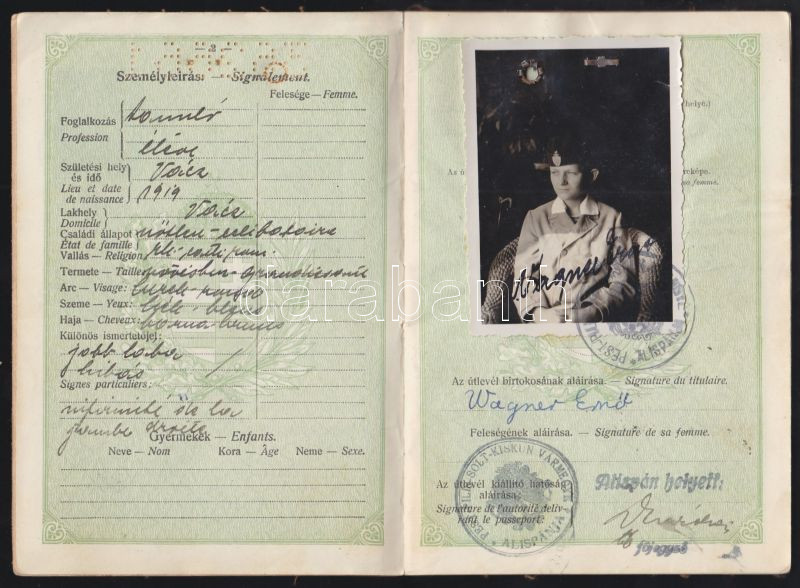 — 2 —
Személyleírás. — Signalement.
Felesége — Femme.
Foglalkozás
Profession
tanuló
élève
Születési hely és idő
Lieu et date de naissance
Vácz
1919
Lakhely
Domicile
Vácz
Családi állapot
État de famille
nőtlen - célibataire
Vallás — Religion
Termete — Taille:
Arc — Visage:
Szeme — Yeux:
kék - bleus
Haja — Cheveux:
barna
Különös ismertetőjel:
jobb lába
hibás
Signes particuliers:
infirmité de la
jambe droite
Gyermekek — Enfants.
Neve — Nom Kora — Âge Neme — Sexe.
darabanth
helyé.)
Az út
reképe.
sa femme.
Az útlevél birtokosának aláírása. — Signature du titulaire.
Wagner Ernő
Feleségének aláírása. — Signature de sa femme.
Az útlevél kiállító hatóság
aláírása:
Signature de l'autorité déliv-
rant le passeport:
PEST-PILIS-SOLT-KISKUN VÁRMEGYE
ALISPÁNJA
Alispán helyett:
főjegyző